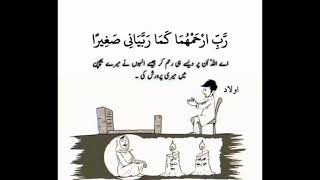 رَّبِّ ارْحَمْهُمَا كَمَا رَبَّيَانِي صَغِيرًا
اے اللہ اُن پر ویسے ہی رحم کر جیسے انہوں نے میرے بچپن
میں میری پرورش کی ۔
اولاد